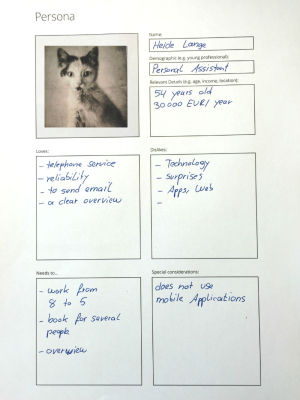 Persona
Name:
Heide Lange
Demographic (e.g. young professional):
Personal Assistant
Relevant Details (e.g. age, income, location):
54 years old
30000 EUR/ year
Loves:
- telephone service
- reliability
- to send email
- a clear overview
Dislikes:
- Technology
- surprises
- Apps, Web
-
Needs to...
- work from
8 to 5
- book for several
people
- overview
Special considerations:
does not use
mobile Applications